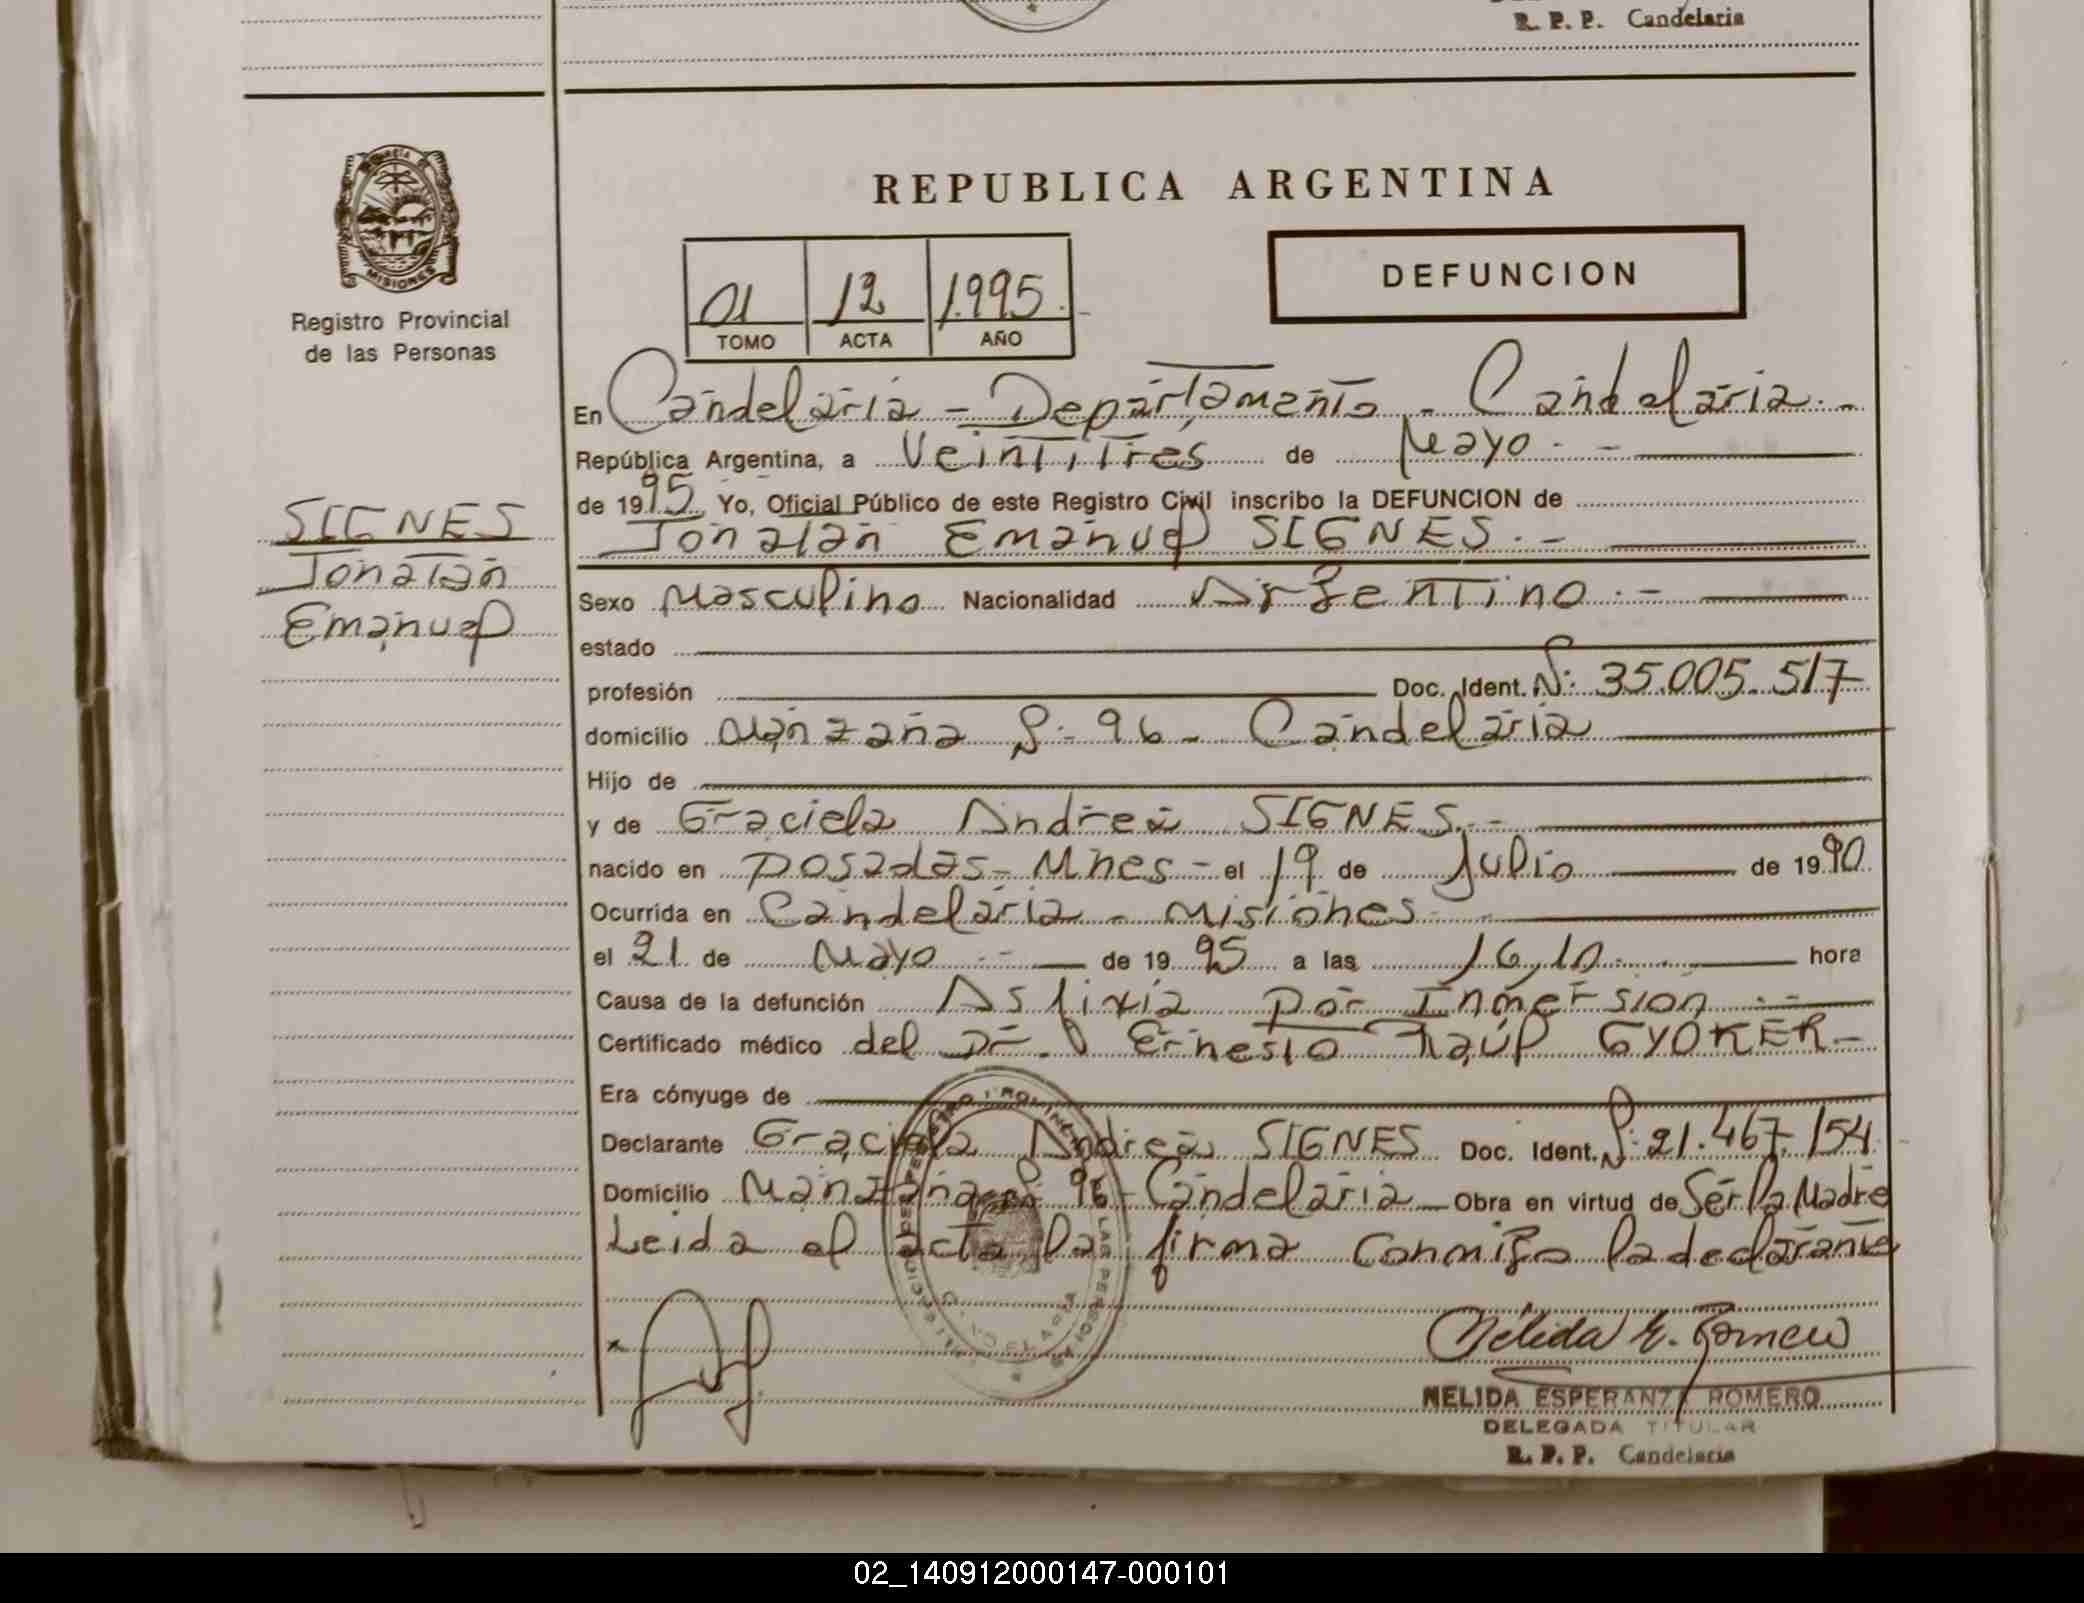 R. P. P. Candelaria
PROVINCIA DE
MISIONES
Registro Provincial
de las Personas
REPUBLICA ARGENTINA
DEFUNCION
01 12 1.995.-
TOMO ACTA AÑO
En Candelaria - Departamento - Candelaria.-
República Argentina, a Veintitres de Mayo.-
de 1995. Yo, Oficial Público de este Registro Civil inscribo la DEFUNCION de
Jonatan Emanuel SIGNES.-
SIGNES
Jonatan
Emanuel
Sexo Masculino Nacionalidad Argentino.-
estado
profesión Doc. Ident. Nº: 35.005.517
domicilio Manzana Nº: 96 - Candelaria
Hijo de
y de Graciela Andrea SIGNES.-
nacido en Posadas - Mnes - el 19 de Julio de 1990.
Ocurrida en Candelaria - Misiones
el 21 de Mayo.- de 1995 a las 16,10.- hora
Causa de la defunción Asfixia por Inmersion.-
Certificado médico del Dr. Ernesto Raúl GYOKER-
Era cónyuge de
Declarante Graciela Andrea SIGNES Doc. Ident. Nº: 21.467.154
Domicilio Manzana Nº 96 - Candelaria Obra en virtud de Ser la Madre
Leida el acta la firma conmigo la declarante
x
Nélida E. Romero
NELIDA ESPERANZA ROMERO
DELEGADA TITULAR
R. P. P. Candelaria
02_140912000147-000101